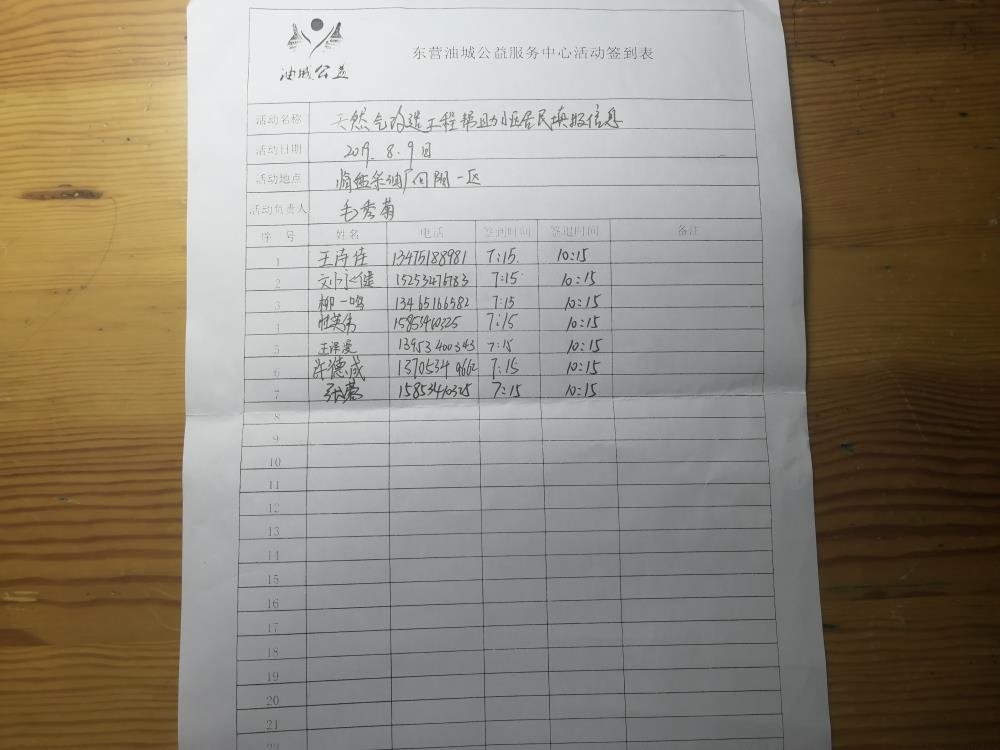 油城公益
东营油城公益服务中心活动签到表
活动名称 天然气改造工程帮助小区居民填报信息
活动日期 2019.8.9日
活动地点 临盘采油厂
活动负责人 毛秀菊
序号 姓名 电话 签到时间 签退时间 备注
1 王诗佳 13475188981 7:15. 10:15
2 刘永健 15253476783 7:15 10:15
3 柳一鸣 13465166582 7:15 10:15
4 杜英伟 15853410325 7:15 10:15
5 13953400343 7:15 10:15
6 许德成 7:15 10:15
7 15853410325 7:15 10:15
8
9
10
11
12
13
14
15
16
17
18
19
20
21
22